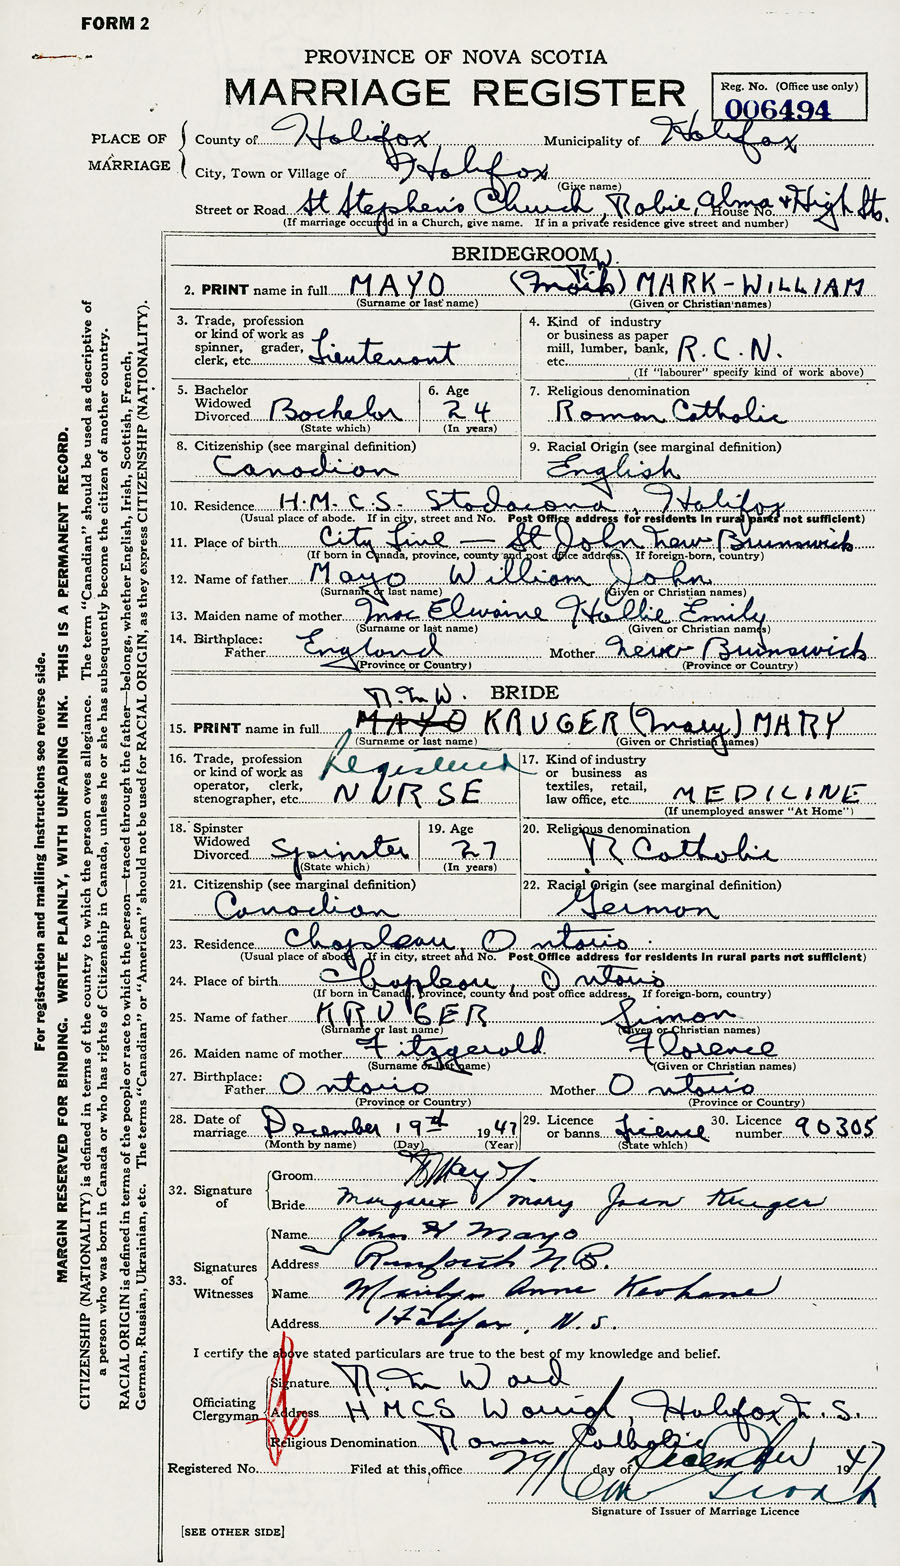 FORM 2
PROVINCE OF NOVA SCOTIA
MARRIAGE REGISTER
Reg. No. (Office use only)
006494
PLACE OF MARRIAGE
County of Halifax Municipality of Halifax
City, Town or Village of Halifax
(Give name)
Street or Road St Stephen's Church, Robie, Alma & High Sts. House No.
(If marriage occurred in a Church, give name. If in a private residence give street and number)
BRIDEGROOM
2. PRINT name in full MAYO (Mark) MARK-WILLIAM
(Surname or last name) (Given or Christian names)
3. Trade, profession or kind of work as spinner, grader, clerk, etc. Lieutenant
4. Kind of industry or business as paper mill, lumber, bank, etc. R.C.N.
(If "labourer" specify kind of work above)
5. Bachelor Widowed Divorced Bachelor
(State which)
6. Age 24
(In years)
7. Religious denomination
Roman Catholic
8. Citizenship (see marginal definition)
Canadian
9. Racial Origin (see marginal definition)
English
10. Residence H.M.C.S. Stadacona, Halifax
(Usual place of abode. If in city, street and No. Post Office address for residents in rural parts not sufficient)
11. Place of birth City Line — St John New Brunswick
(If born in Canada, province, county and post office address. If foreign-born, country)
12. Name of father Mayo William John
(Surname or last name) (Given or Christian names)
13. Maiden name of mother Mac Elwaine Hollie Emily
(Surname or last name) (Given or Christian names)
14. Birthplace: Father England Mother New Brunswick
(Province or Country) (Province or Country)
BRIDE
15. PRINT name in full MAYO KRUGER (Mary) MARY
(Surname or last name) (Given or Christian names)
16. Trade, profession or kind of work as operator, clerk, stenographer, etc. Registered NURSE
17. Kind of industry or business as textiles, retail, law office, etc. MEDICINE
(If unemployed answer "At Home")
18. Spinster Widowed Divorced Spinster
(State which)
19. Age 27
(In years)
20. Religious denomination
R Catholic
21. Citizenship (see marginal definition)
Canadian
22. Racial Origin (see marginal definition)
German
23. Residence Chapleau, Ontario
(Usual place of abode. If in city, street and No. Post Office address for residents in rural parts not sufficient)
24. Place of birth Chapleau, Ontario
(If born in Canada, province, county and post office address. If foreign-born, country)
25. Name of father KRUGER Simon
(Surname or last name) (Given or Christian names)
26. Maiden name of mother Fitzgerald Florence
(Surname or last name) (Given or Christian names)
27. Birthplace: Father Ontario Mother Ontario
(Province or Country) (Province or Country)
28. Date of marriage December 19th 1947
(Month by name) (Day) (Year)
29. Licence or banns Licence
(State which)
30. Licence number 90305
32. Signature of
Groom Mayo
Bride Margaret Mary Joan Kruger
33. Signatures of Witnesses
Name John H Mayo
Address Renforth N.B.
Name Marilyn Anne Keohane
Address Halifax, N.S.
I certify the above stated particulars are true to the best of my knowledge and belief.
Officiating Clergyman
Signature Ward
Address HMCS Warrior, Halifax N.S.
Religious Denomination Roman Catholic
Registered No. Filed at this office 29 day of December 1947
Signature of Issuer of Marriage Licence
[SEE OTHER SIDE]
For registration and mailing instructions see reverse side.
MARGIN RESERVED FOR BINDING. WRITE PLAINLY, WITH UNFADING INK. THIS IS A PERMANENT RECORD.
CITIZENSHIP (NATIONALITY) is defined in terms of the country to which the person owes allegiance. The term "Canadian" should be used as descriptive of
a person who was born in Canada or who has rights of Citizenship in Canada, unless he or she has subsequently become the citizen of another country.
RACIAL ORIGIN is defined in terms of the people or race to which the person—traced through the father—belongs, whether English, Irish, Scottish, French,
German, Russian, Ukrainian, etc. The terms "Canadian" or "American" should not be used for RACIAL ORIGIN, as they express CITIZENSHIP (NATIONALITY).